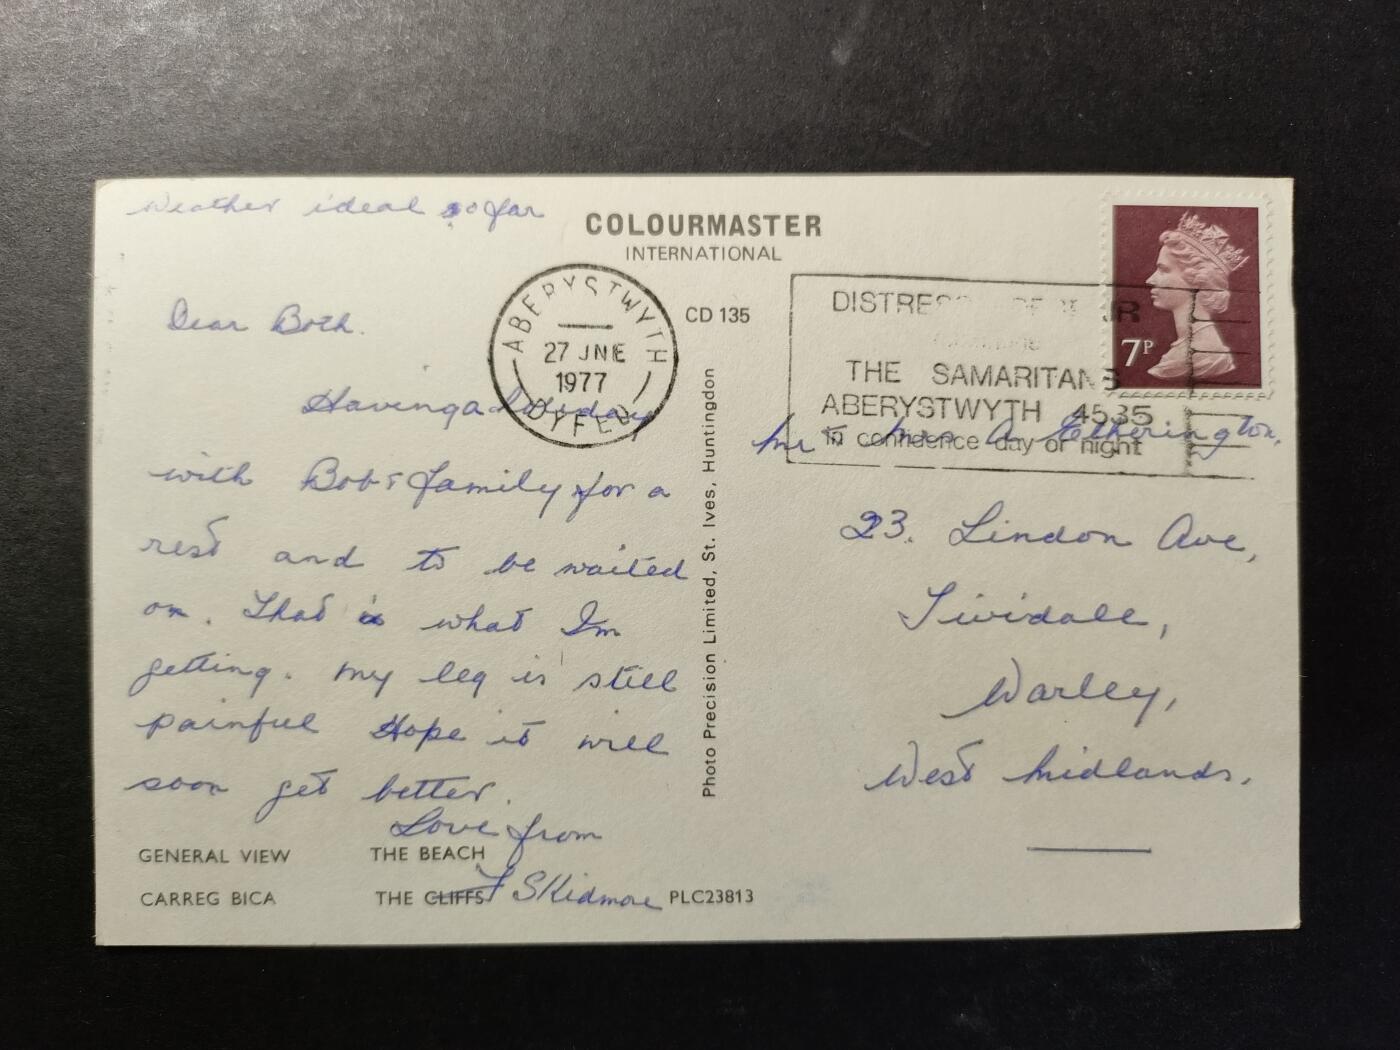 Weather ideal so far
COLOURMASTER
INTERNATIONAL
CD 135
ABERYSTWYTH
27 JNE
1977
DYFED
DISTRESS
THE SAMARITANS
ABERYSTWYTH 4535
in confidence day or night
7P
Dear Both.
Having a holiday
with Bob & family for a
rest and to be waited
on. That is what Im
getting. My leg is still
painful Hope it will
soon get better.
Love from
F Skidmore
Photo Precision Limited, St. Ives, Huntingdon
Mr & Mrs A Etherington,
23. Lindon Ave,
Tividale,
Warley,
West Midlands.
GENERAL VIEW THE BEACH
CARREG BICA THE CLIFFS PLC23813